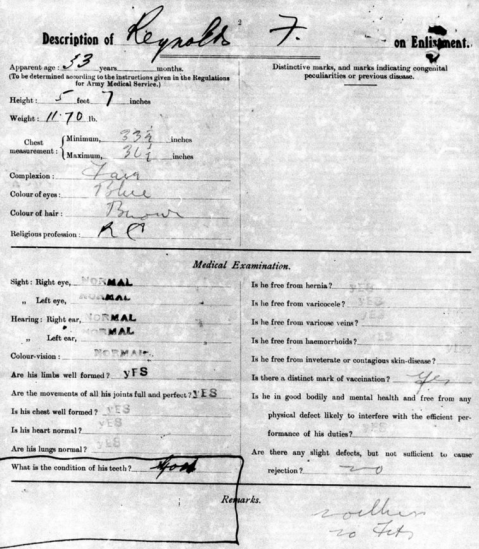 2
Description of Reynolds F. on Enlistment.
Apparent age: 33 years months.
(To be determined according to the instructions given in the Regulations
for Army Medical Service.)
Height: 5 feet 7 inches
Weight: 11.70 lb.
Chest measurement: { Minimum, 33½ inches
Maximum, 36½ inches
Complexion: Fair
Colour of eyes: Blue
Colour of hair: Brown
Religious profession: R C
Distinctive marks, and marks indicating congenital
peculiarities or previous disease.
Medical Examination.
Sight: Right eye, NORMAL
„ Left eye, NORMAL
Hearing: Right ear, NORMAL
„ Left ear, NORMAL
Colour-vision: NORMAL
Are his limbs well formed? YES
Are the movements of all his joints full and perfect? YES
Is his chest well formed? YES
Is his heart normal? YES
Are his lungs normal? YES
What is the condition of his teeth? Good
Is he free from hernia? YES
Is he free from varicocele? YES
Is he free from varicose veins? YES
Is he free from haemorrhoids? YES
Is he free from inveterate or contagious skin-disease?
Is there a distinct mark of vaccination? Yes
Is he in good bodily and mental health and free from any
physical defect likely to interfere with the efficient per-
formance of his duties? YES
Are there any slight defects, but not sufficient to cause
rejection? no
Remarks.
no Fits